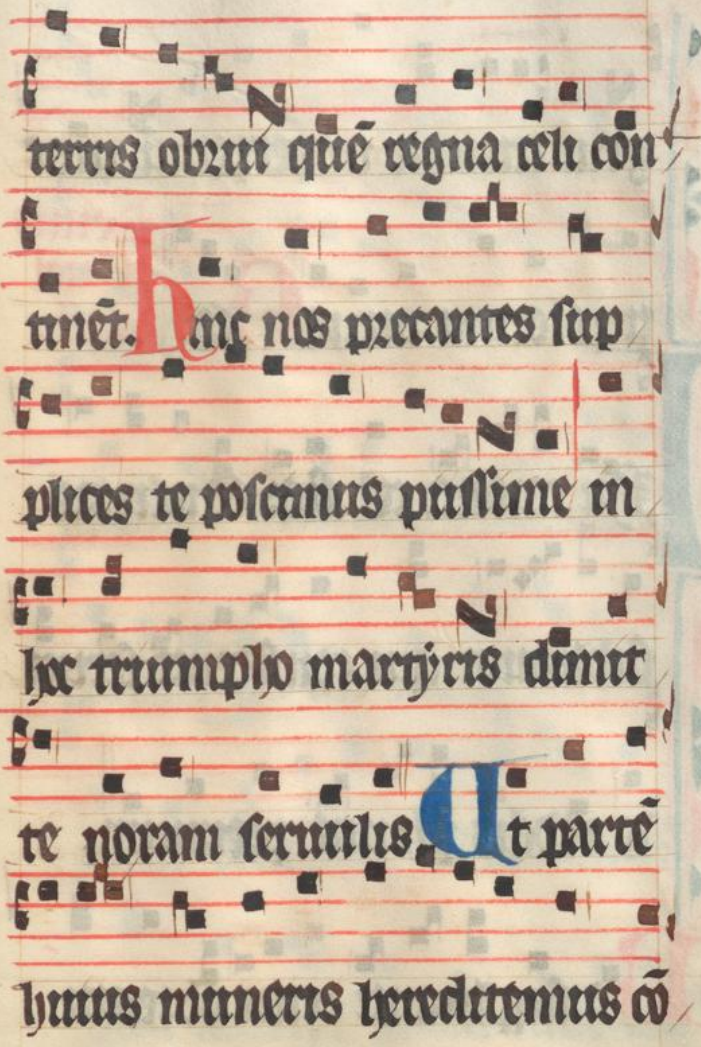 terris obruit quē regna celi con
tinēt. hinc nos precantes sup
plices te poscimus piissime in
hoc triumpho martyris dimit
te noxam seruulis. Ut partē
huius muneris hereditemus cō